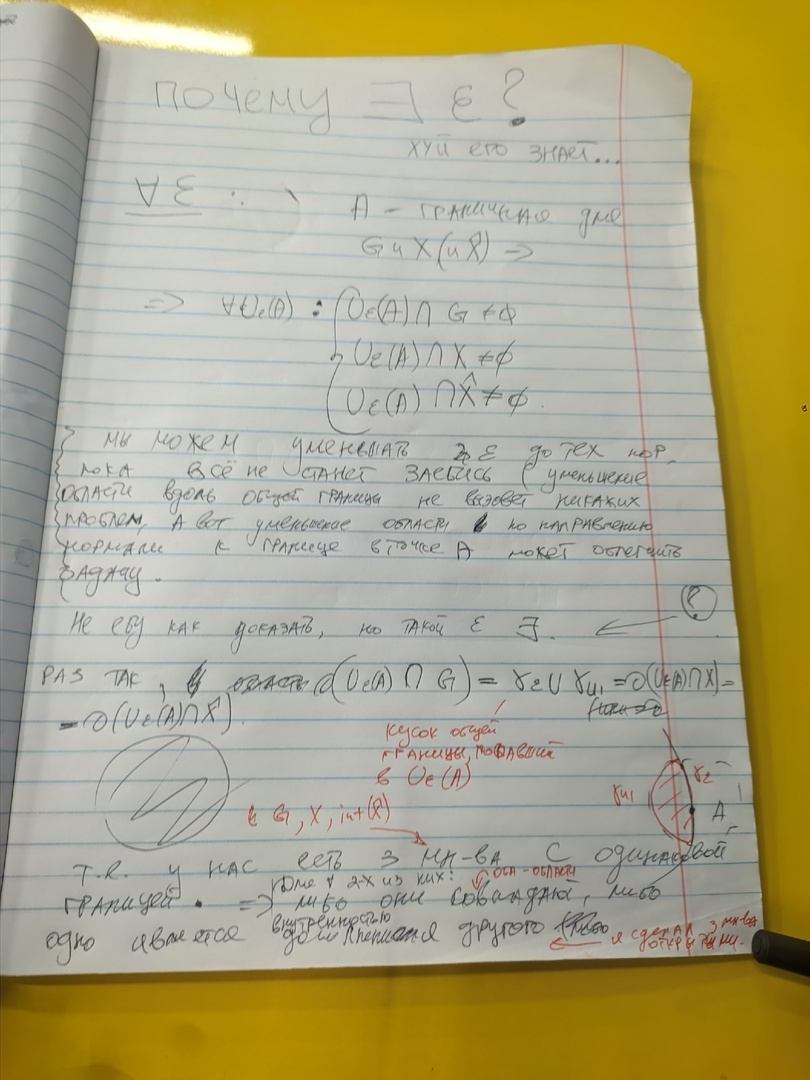 ПОЧЕМУ ∃ ε?
ХУЙ ЕГО ЗНАЕТ...
∀ ∃ :
A – ГРАНИЧНАЯ ДЛЯ
G и X (и X̂) ⇒
⇒ ∀Uε(A) : Uε(A) ∩ G ≠ ∅
Uε(A) ∩ X ≠ ∅
Uε(A) ∩ X̂ ≠ ∅.
МЫ МОЖЕМ УМЕНЬШАТЬ ε ДО ТЕХ ПОР,
ПОКА ВСЁ НЕ СТАНЕТ ЗАЕБИСЬ (УМЕНЬШЕНИЕ
ОБЛАСТИ ВДОЛЬ ОБЩЕЙ ГРАНИЦЫ НЕ ВЫЗОВЕТ НИКАКИХ
ПРОБЛЕМ, А ВОТ УМЕНЬШЕНИЕ ОБЛАСТИ ПО НАПРАВЛЕНИЮ
НОРМАЛИ К ГРАНИЦЕ В ТОЧКЕ A МОЖЕТ ОБЛЕГЧИТЬ
ЗАДАЧУ.
?
НЕ ЕБУ КАК ДОКАЗАТЬ, НО ТАКОЙ ε ∃.
РАЗ ТАК, ОБЛАСТЬ ∂(Uε(A) ∩ G) = γε ∪ γu₁ = ∂(Uε(A) ∩ X) =
= ∂(Uε(A) ∩ X̂).
КУСОК ОБЩЕЙ
ГРАНИЦЫ, ПОПАВШИЙ
В Uε(A)
γu₁ γε
A
G, X, int(X̂)
Т.Е. У НАС ЕСТЬ 3 МН-ВА С ОДИНАКОВОЙ
ДЛЯ ∀ 2-Х ИЗ НИХ: ОБА – ОБЛАСТИ
ГРАНИЦЕЙ. ⇒ ЛИБО ОНИ СОВПАДАЮТ, ЛИБО
ВНУТРЕННОСТЬЮ
ОДНО ЯВЛЯЕТСЯ ДОПОЛНЕНИЯ ДРУГОГО
Я СДЕЛАЛ 3 МН-ВА
ОТКРЫТЫМИ.